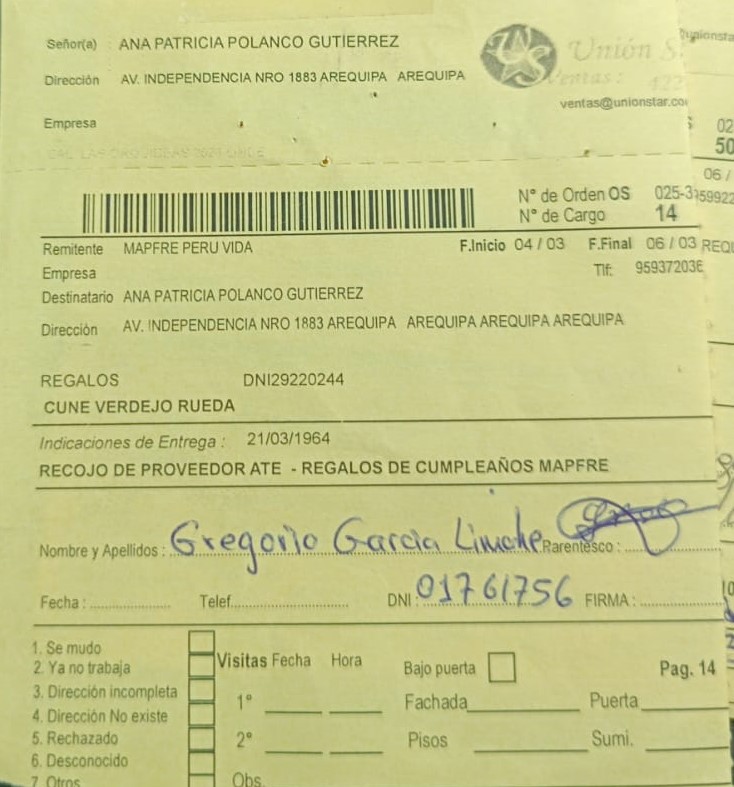 Señor(a) ANA PATRICIA POLANCO GUTIERREZ
Dirección AV. INDEPENDENCIA NRO 1883 AREQUIPA AREQUIPA
Empresa
US Unión S
Ventas: 122
ventas@unionstar.co
unionsta
02
50
06 /
N° de Orden OS 025-3
59922
N° de Cargo 14
Remitente MAPFRE PERU VIDA F.Inicio 04 / 03 F.Final 06 / 03 REQU
Empresa Tlf: 95937203
Destinatario ANA PATRICIA POLANCO GUTIERREZ
Dirección AV. INDEPENDENCIA NRO 1883 AREQUIPA AREQUIPA AREQUIPA AREQUIPA
REGALOS DNI29220244
CUNE VERDEJO RUEDA
Indicaciones de Entrega : 21/03/1964
RECOJO DE PROVEEDOR ATE - REGALOS DE CUMPLEAÑOS MAPFRE
Nombre y Apellidos : Gregorio Garcia Parentesco :
Fecha : Telef. DNI : 01761756 FIRMA :
1. Se mudo
2. Ya no trabaja
3. Dirección incompleta
4. Dirección No existe
5. Rechazado
6. Desconocido
7. Otros
Visitas Fecha Hora
1°
2°
Obs.
Bajo puerta Pag. 14
Fachada Puerta
Pisos Sumi.